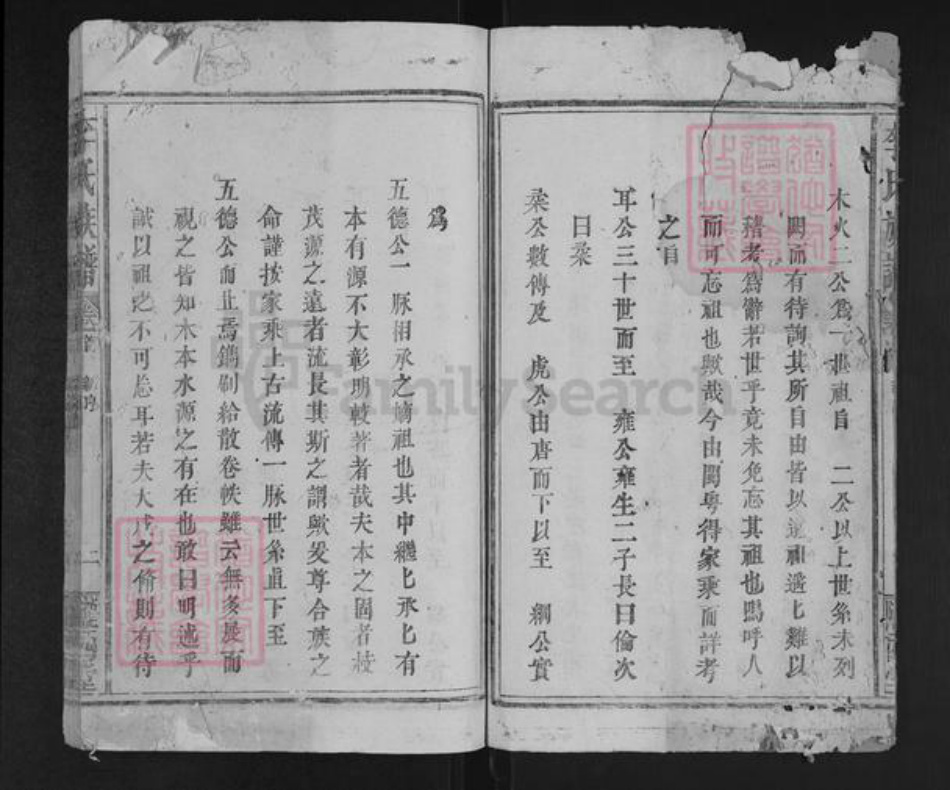 木火二公爲一世祖自 二公以上世系未列
闕而有待詢其所自由皆以遠祖遙七難以
稽考爲辭若世乎竟未免忘其祖也嗚呼人
而可忘祖也歟哉今由閩粤得家乘而詳考
之自
耳公三十世而至 雍公雍生二子長曰倫次
曰桒
桒公數傳及 虎公由唐而下以至 綱公實
爲
五德公一脉相承之嫡祖也其中繼七承七有
本有源不大彰明較著者哉夫本之固者枝
茂源之遠者流長其斯之謂歟爰尊合族之
命謹拔家乘上古流傳一脉世系直下至
五德公而止焉鐫刷給散卷帙雖云無多展而
視之皆知木本水源之有在也敢曰明述乎
誠以祖之不可忘耳若夫大成之脩則有待
李氏族譜 卷首
二
FamilySearch